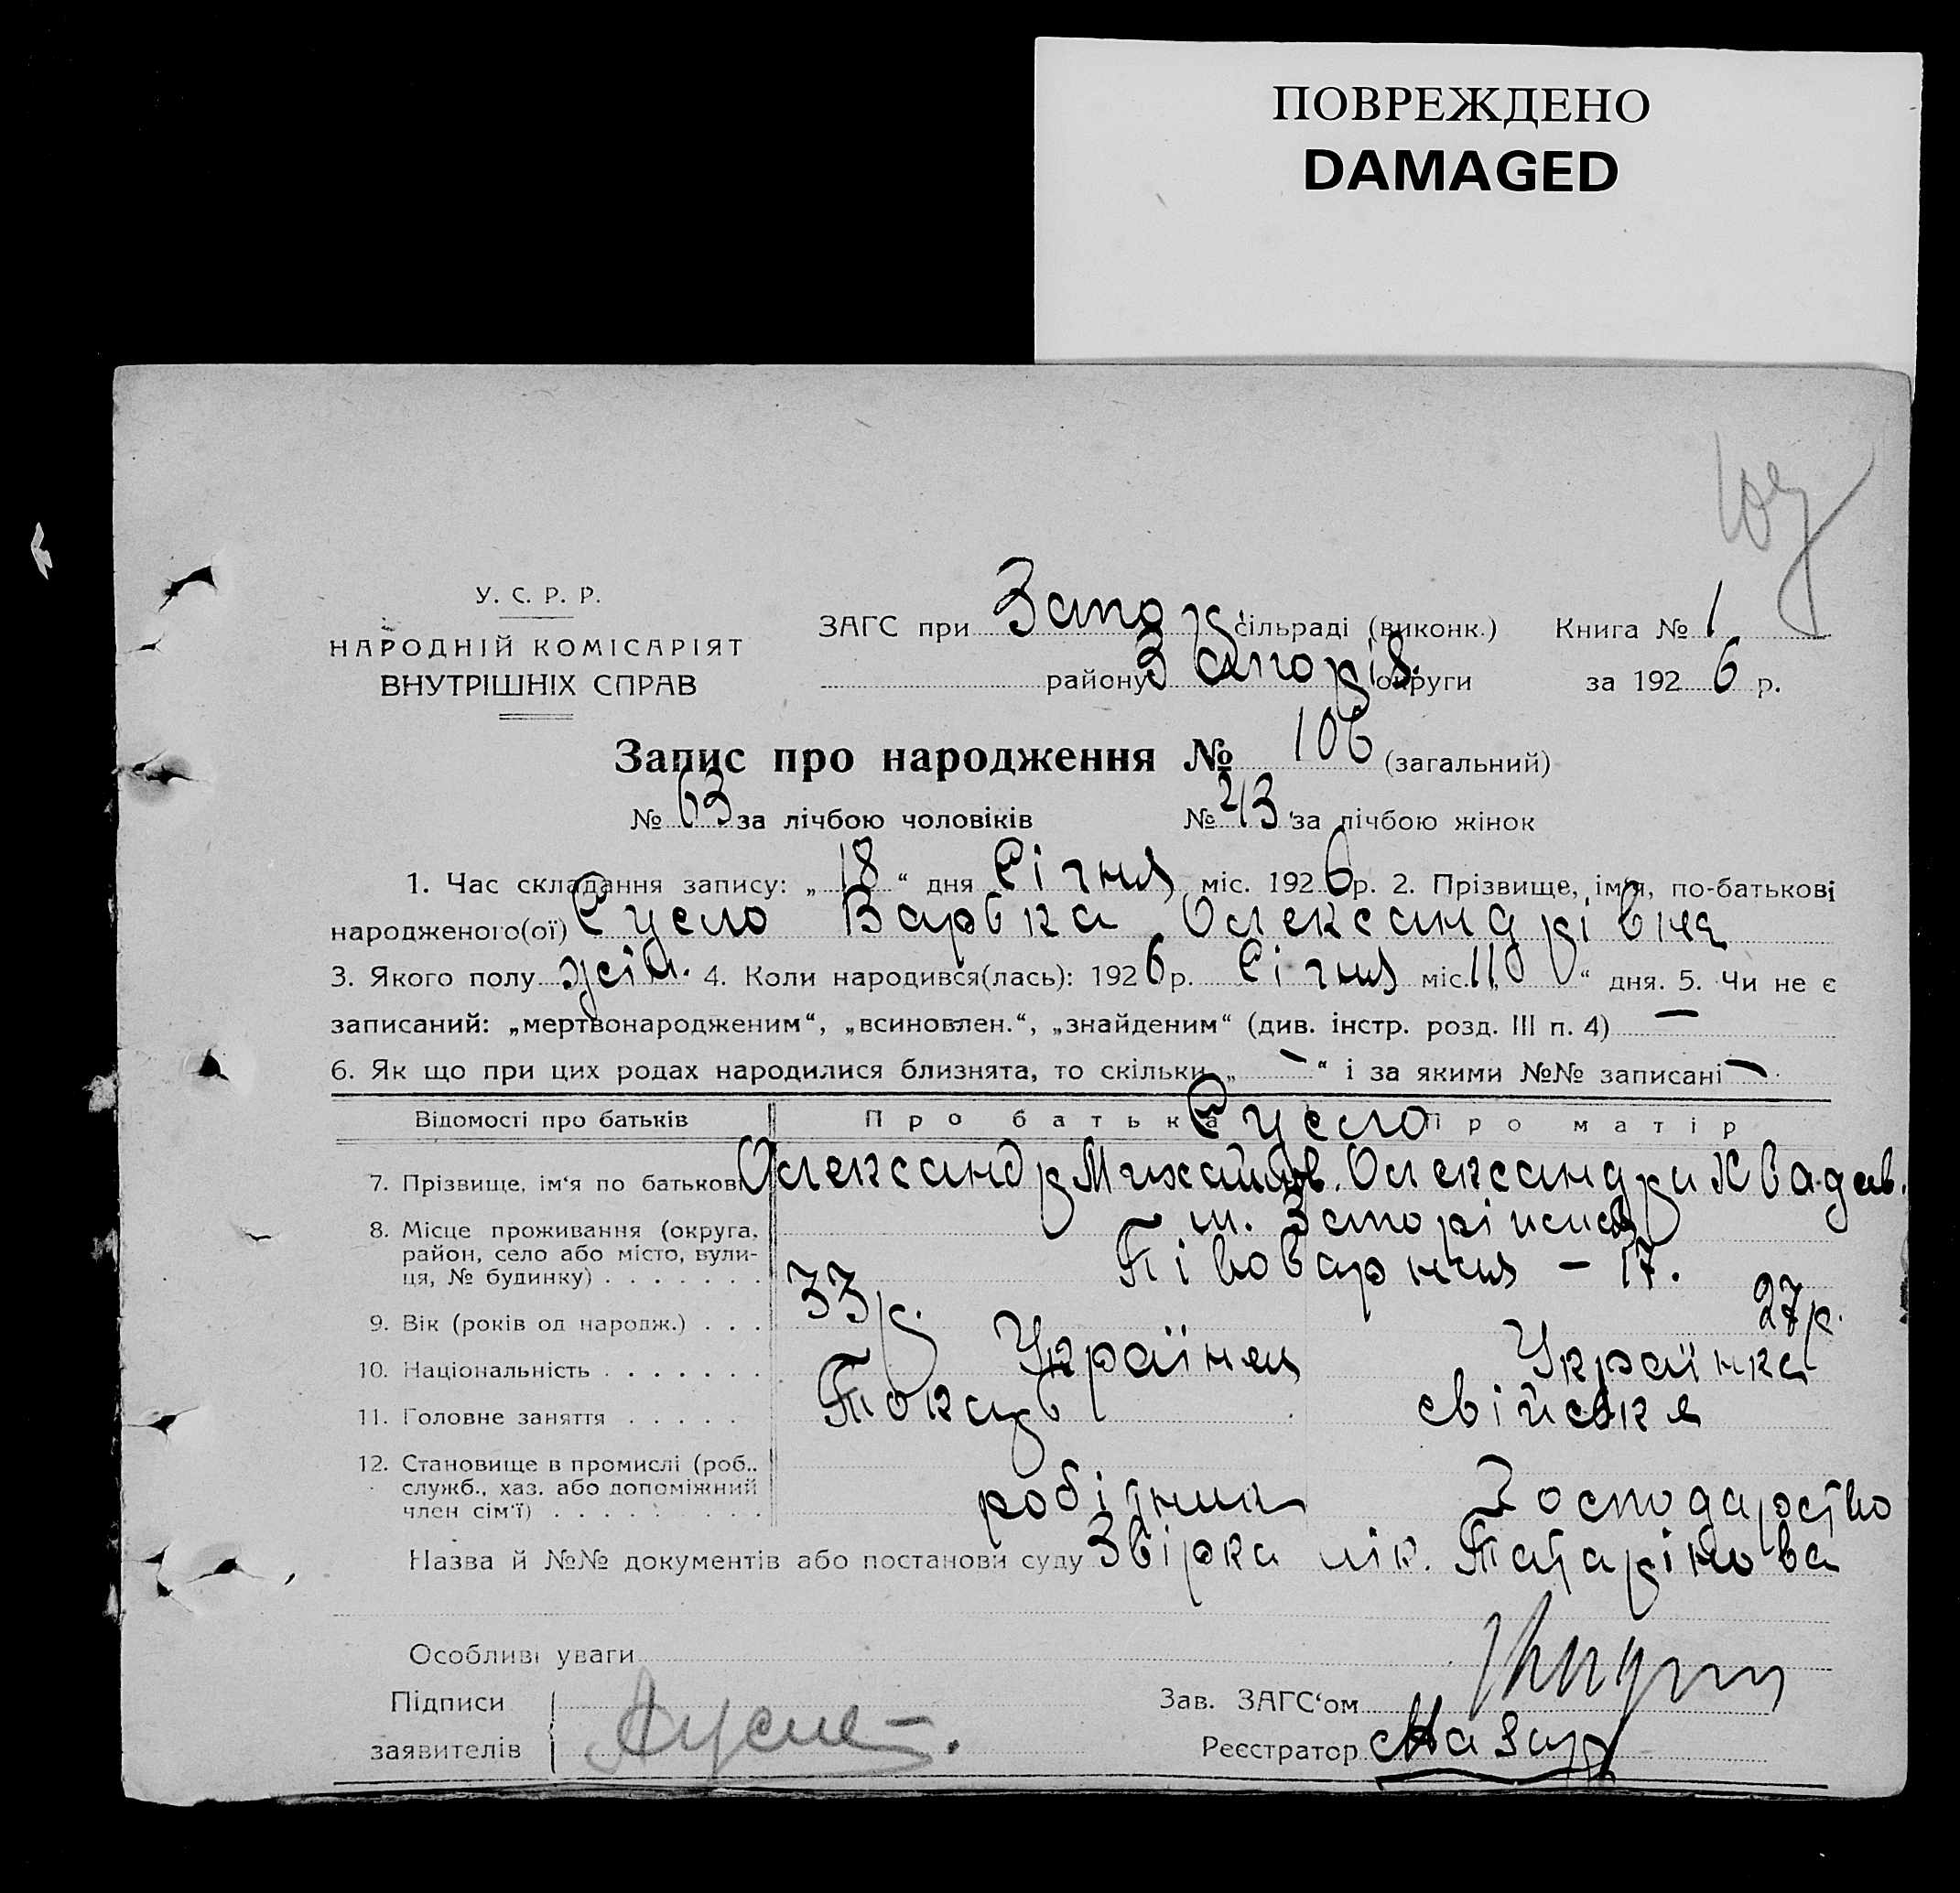 ПОВРЕЖДЕНО
DAMAGED
У. С. Р. Р.
НАРОДНІЙ КОМІСАРІЯТ
ВНУТРІШНІХ СПРАВ
ЗАГС при Запор. сільраді (виконк.) Книга № 1
району Запоріз. округи за 1926 р.
Запис про народження № 106 (загальний)
№ 63 за лічбою чоловіків № 43 за лічбою жінок
1. Час складання запису: „18“ дня Січня міс. 1926 р. 2. Прізвище, ім'я, по-батькові
народженого(ої) Сусло Варвка Олександрівна
3. Якого полу жін. 4. Коли народився(лась): 1926 р. Січня міс. „11“ дня. 5. Чи не є
записаний: „мертвонародженим“, „всиновлен.“, „знайденим“ (див. інстр. розд. III п. 4) —
6. Як що при цих родах народилися близнята, то скільки „—“ і за якими №№ записані —
Відомості про батьків Про батька Про матір
Сусло
7. Прізвище, ім'я по батькові Олександр Михайлов. Олександра
8. Місце проживання (округа, район, село або місто, вулиця, № будинку) . . . . . . . м. Запоріжжя
Півоварная – 17.
9. Вік (років од народж.) . . . 33 р. 27 р.
10. Національність . . . . . . . Українец Українка
11. Головне заняття . . . . . Токарь свійське
12. Становище в промислі (роб., служб., хаз. або допоміжний член сім'ї) . . . . . . . . . робітник Господарство
Назва й №№ документів або постанови суду Звірка лік. Татарінова
Особливі уваги
Підписи
заявителів
Зав. ЗАГС'ом
Реєстратор Мазур